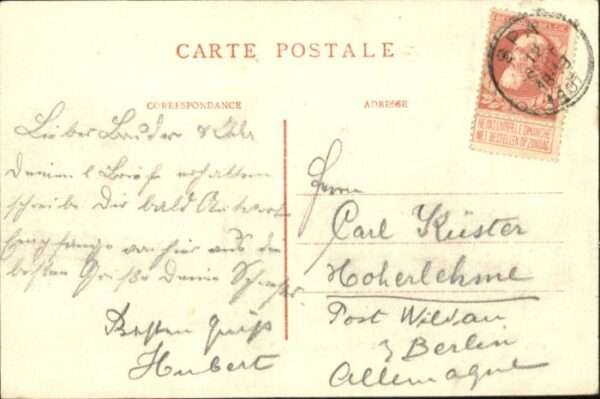 CARTE POSTALE
CORRESPONDANCE
ADRESSE
SPA
1907
NE PAS LIVRER LE DIMANCHE
NIET BESTELLEN OP ZONDAG
Lieber Bruder &
Deinen l Brief erhalten
schreibe Dir bald Antwort
Empfange von hier aus die
besten Grüße Deine
Besten Gruß
Hubert
Herrn
Carl Küster
Hoherlehme
Post Wildau
z Berlin
Allemagne